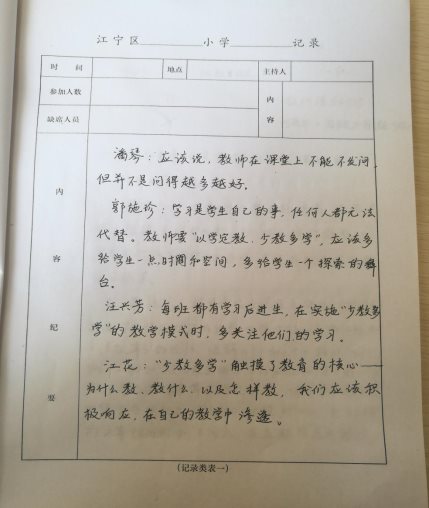 江宁区 小学 记录
时间 地点 主持人
参加人数 内容
缺席人员
内容纪要
潘琴：应该说，教师在课堂上不能不发问，
但并不是问得越多越好。
郭施珍：学习是学生自己的事，任何人都无法
代替。教师要“以学定教，少教多学”，应该多
给学生一点时间和空间，多给学生一个探索的舞
台。
汪兴芳：每班都有学习后进生，在实施“少教多
学”的教学模式时，多关注他们的学习。
江花：“少教多学”触摸了教育的核心——
为什么教、教什么、以及怎样教，我们应该积
极响应，在自己的教学中渗透。
（记录类表一）